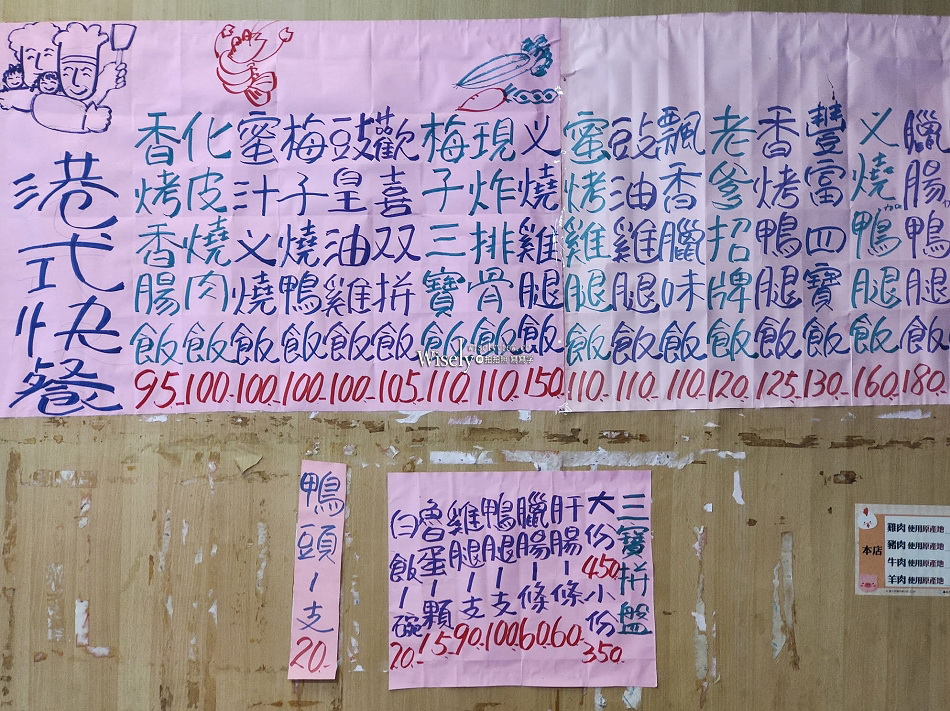 港式快餐
香烤香腸飯95.-
化皮燒肉飯100.-
蜜汁义燒飯100.-
梅子燒鴨飯100.-
豉皇油雞飯100.-
歡喜双拼飯105.-
梅子三寶飯110.-
現炸排骨飯110.-
义燒雞腿飯150.-
蜜烤雞腿飯110.-
豉油雞腿飯110.-
飄香臘味飯110.-
老爹招牌飯120.-
香烤鴨腿飯125.-
豐富四寶飯130.-
义燒鴨腿飯160.-
臘腸鴨腿飯180.-
Wisely拍拍照寫寫字
鴨頭一支20.-
白飯一碗20.-
魯蛋一顆15.-
雞腿一支90.-
鴨腿一支100.
臘腸一條60.
肝腸一條60.-
大份450.小份350.
三寶拼盤
本店
雞肉使用原產地
豬肉使用原產地
牛肉使用原產地
羊肉使用原產地